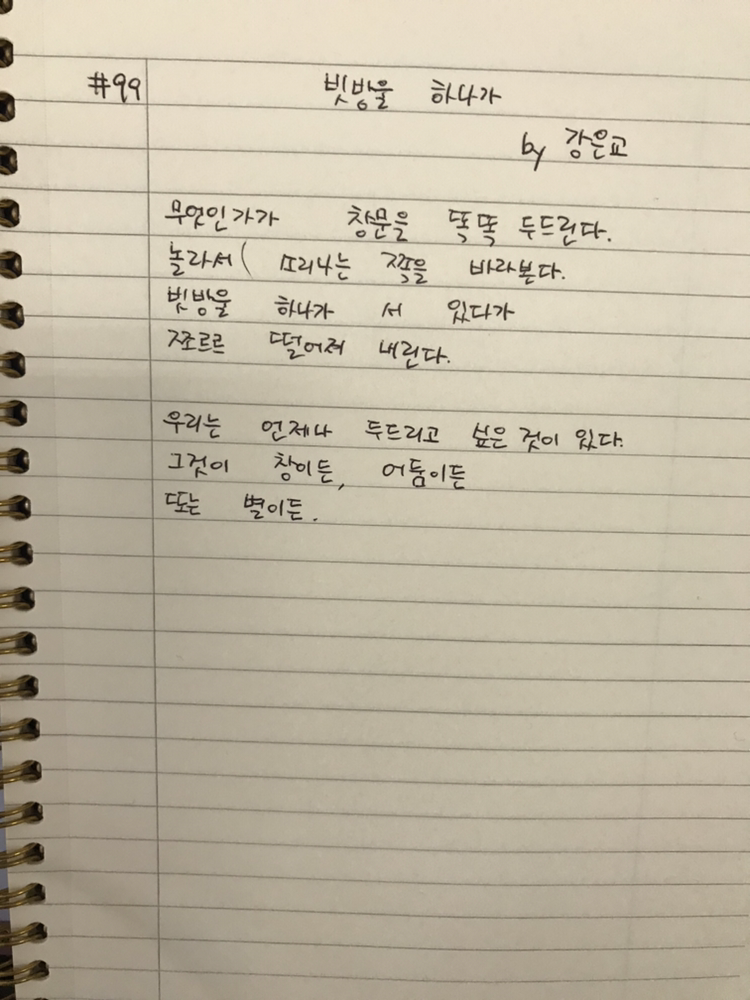 #99
빗방울 하나가
by 강은교
무엇인가가 창문을 똑똑 두드린다.
놀라서( 소리나는 쪽을 바라본다.
빗방울 하나가 서 있다가
쪼르르 떨어져 내린다.
우리는 언제나 두드리고 싶은 것이 있다.
그것이 창이든, 어둠이든
또는 별이든.